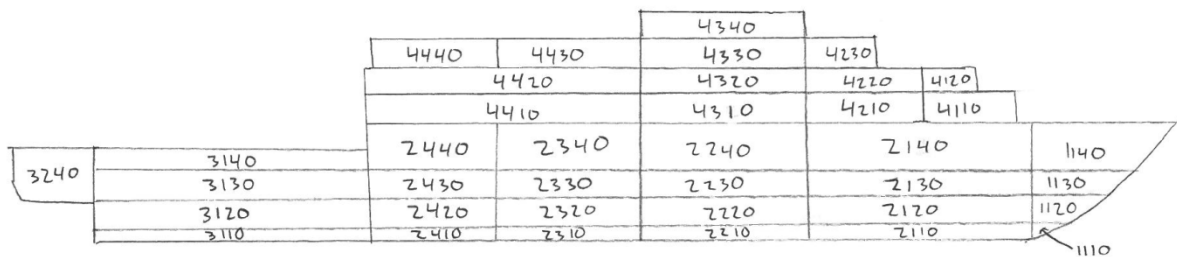 4340
4440 4430 4330 4230
4420 4320 4220 4120
4410 4310 4210 4110
2440 2340 2240 2140 1140
3240 3140
3130 2430 2330 2230 2130 1130
3120 2420 2320 2220 2120 1120
3110 2410 2310 2210 2110
1110